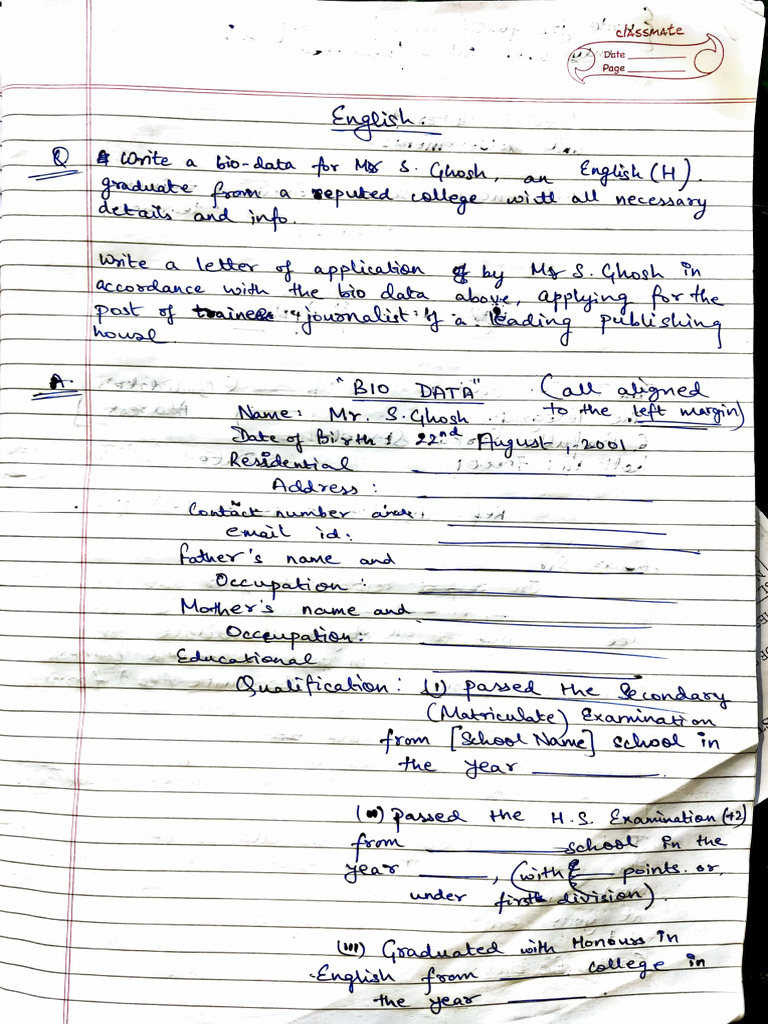 classmate
Date
Page
English.
Q Write a bio-data for Mr S. Ghosh, an English (H).
graduate from a reputed college with all necessary
details and info.
Write a letter of application by Mr S. Ghosh in
accordance with the bio data above, applying for the
post of trainee journalist of a leading publishing
house.
A. "BIO DATA" (all aligned
Name: Mr. S. Ghosh to the left margin)
Date of Birth: 22nd August, 2001.
Residential
Address:
Contact number and
email id:
Father's name and
Occupation:
Mother's name and
Occupation:
Educational
Qualification: (i) passed the Secondary
(Matriculate) Examination
from [School Name] school in
the year ______.
(ii) passed the H.S. Examination (+2)
from ______ school in the
year ____, (with ___ points. or,
under first division).
(iii) Graduated with Honours in
English from ____ college in
the year ____.